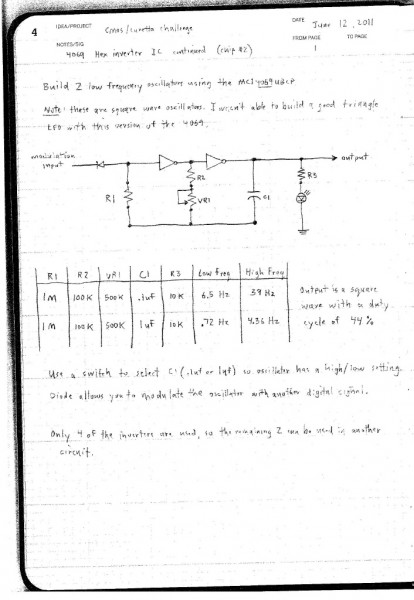 4
IDEA/PROJECT Cmos/cunetto challenge DATE June 12, 2011
NOTES/SIG FROM PAGE TO PAGE
4069 Hex inverter IC continued (chip #2) 1
Build 2 low frequency oscillators using the MC14069UBCP
Note: these are square wave oscillators. I wasn't able to build a good triangle
LFO with this version of the 4069.
modulation
input
output
R2
R3
R1
VR1
C1
R1 R2 VR1 C1 R3 Low freq High Freq
1M 100K 500K .1uf 10K 6.5 Hz 39 Hz
1M 100K 500K 1uf 10K .72 Hz 4.36 Hz
Output is a square
wave with a duty
cycle of 44%
Use a switch to select C1 (.1uf or 1uf) so oscillator has a high/low setting.
Diode allows you to modulate the oscillator with another digital signal.
Only 4 of the inverters are used, so the remaining 2 can be used in another
circuit.